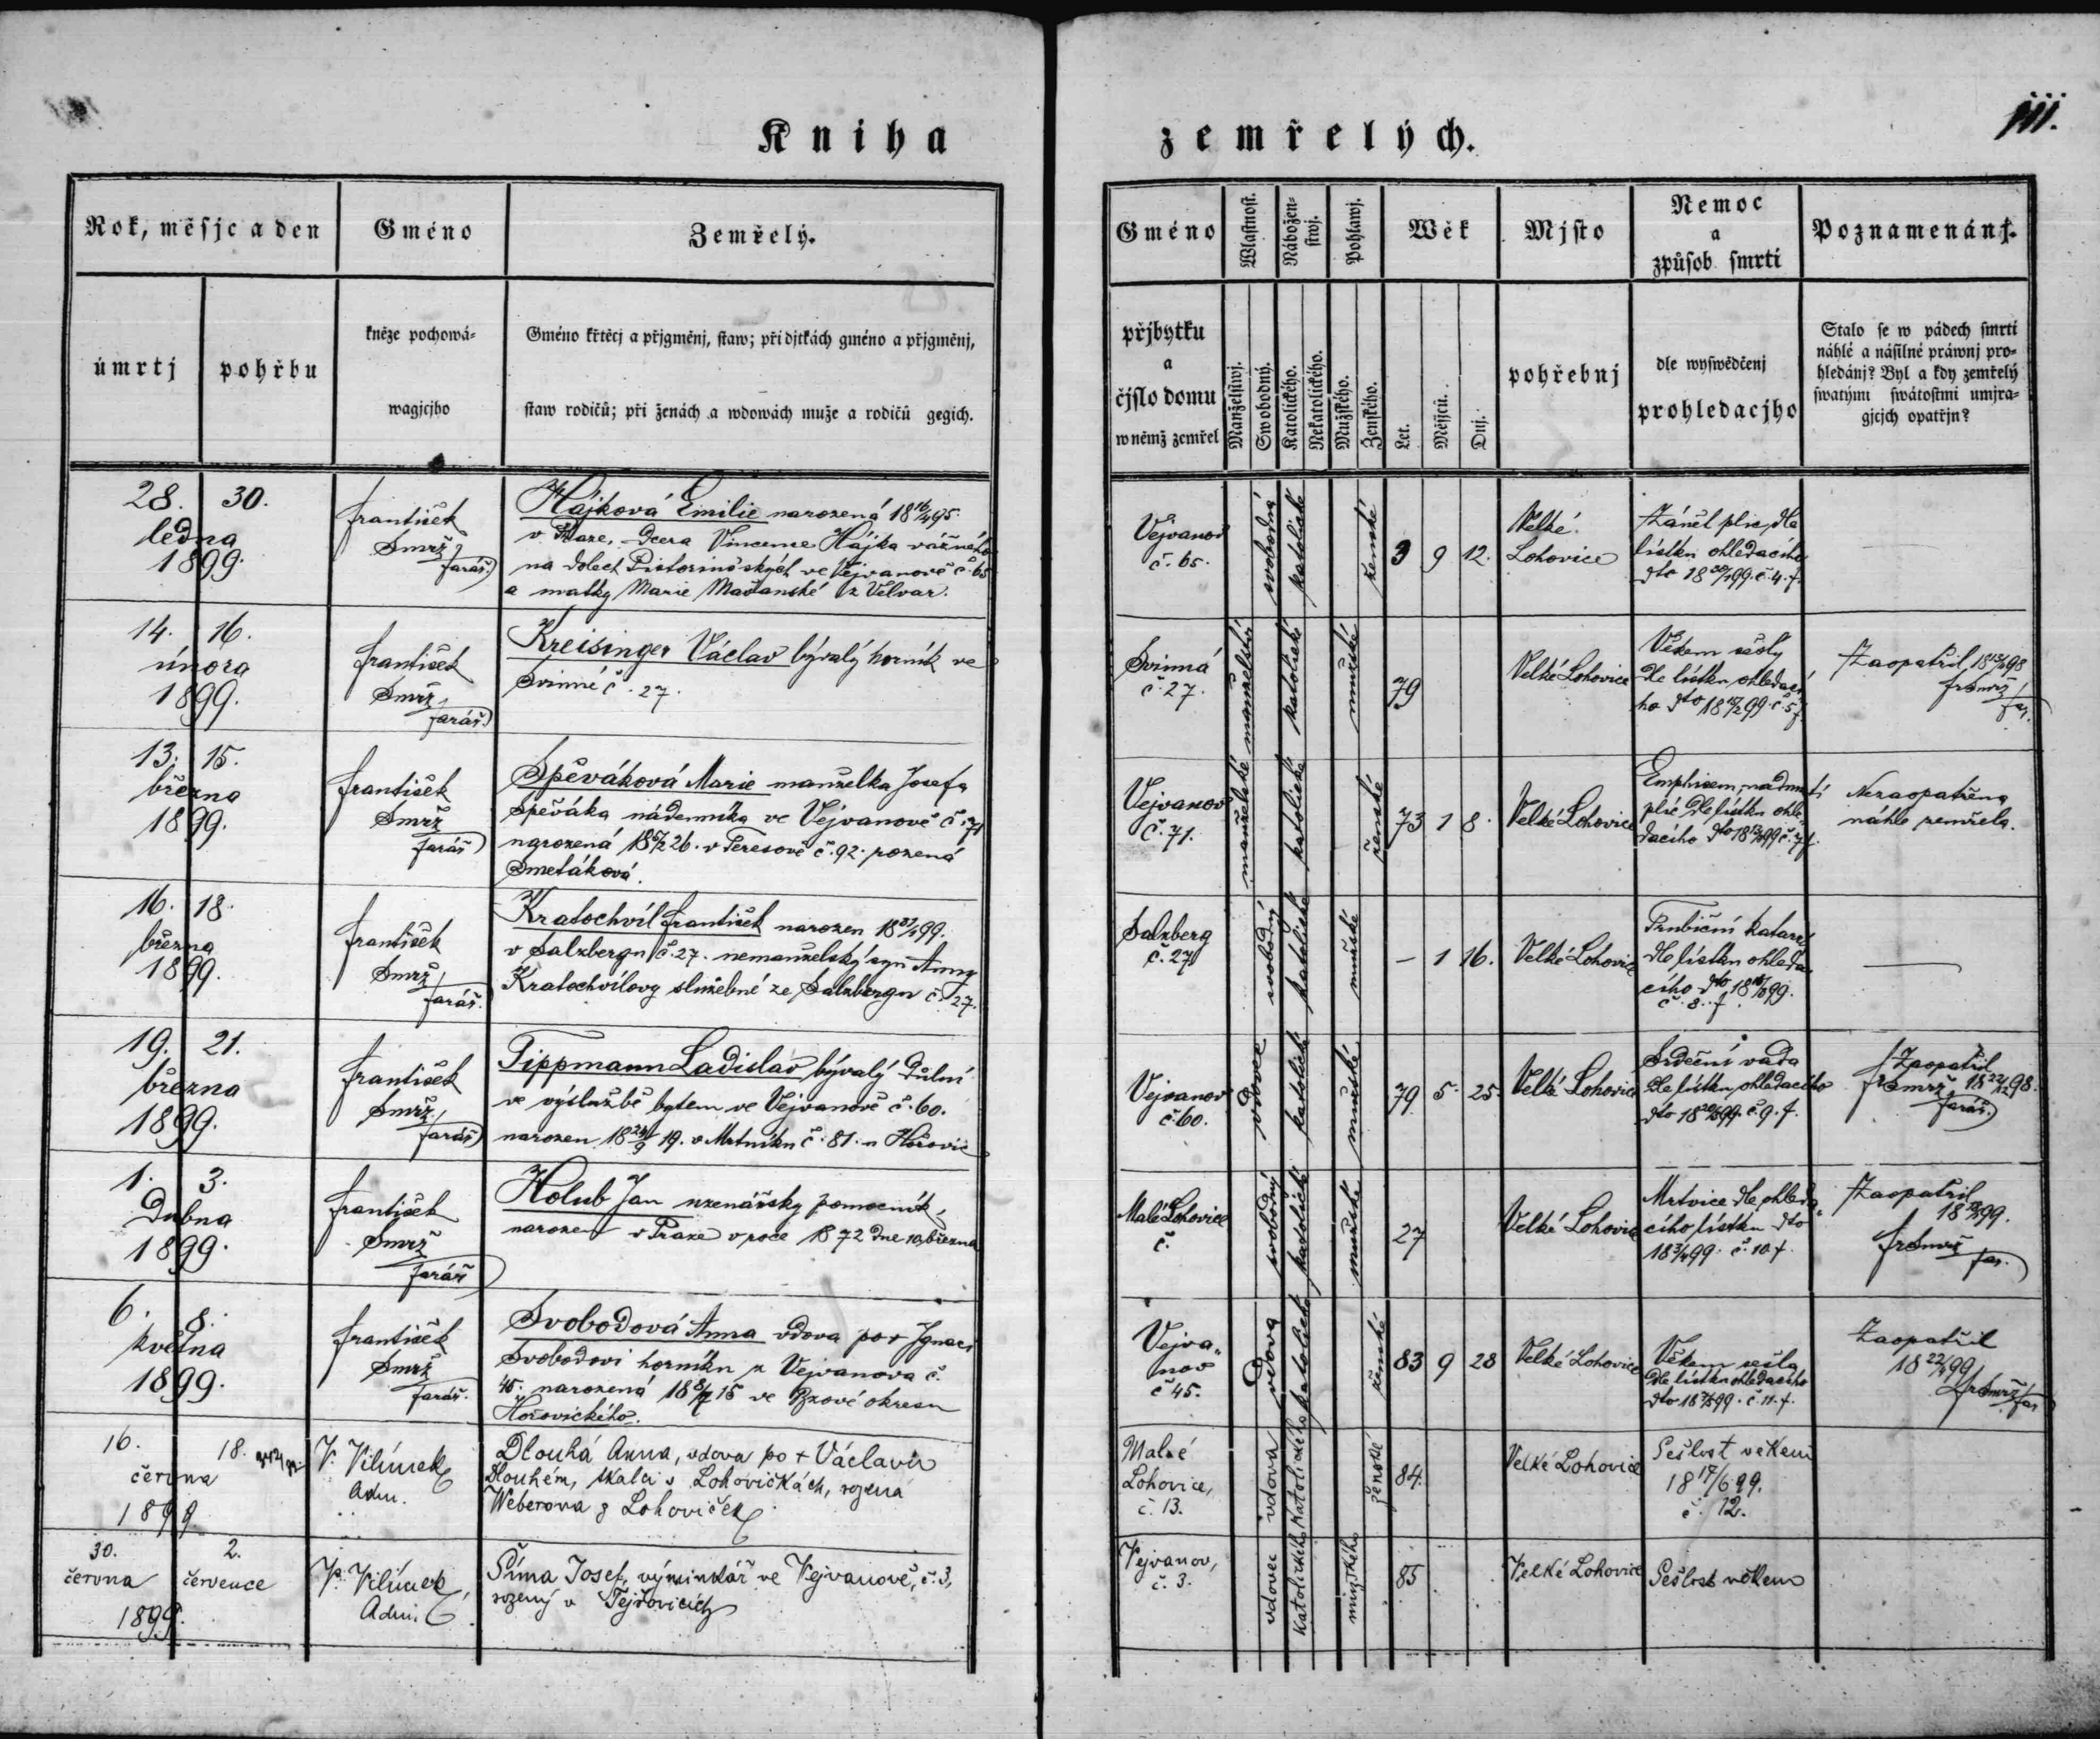 Kniha zemřelých.
Rok, měsjc a den
Gméno
Zemřelý.
úmrtj
pohřbu
kněze pochowá-
wagjcjho
Gméno křtěcj a přjgměnj, staw; při djtkách gméno a přjgměnj,
staw rodičů; při ženách a wdowách muže a rodičů gegich.
Gméno
Wlastnost.
Nábožen-
stwj.
Pohlawj.
Wěk
Mjsto
Nemoc
a
způsob smrti
Poznamenánj.
přjbytku
a
čjslo domu
w němž zemřel
Manželstwj.
Swobodný.
Katolického.
Nekatolického.
Mužského.
Ženského.
Let.
Měsjců.
Dnj.
pohřebnj
dle wyswědčenj
prohledacjho
Stalo se w pádech smrti
náhlé a násilné práwnj pro-
hledánj? Byl a kdy zemřelý
swatými swátostmi umjra-
gjcjch opatřjn?
28. 30.
ledna
1899.
František
Smrž,
farář
Hájková Emilie narozená 18 16/4 95.
v Praze, dcera Vincence Hájka vážného
na dolech Pistoriusských ve Vejvanově č. 65
a matky Marie z Velvar.
Vejvanov
č. 65.
svobodná
katolické
ženské
3 9 12.
Velké
Lohovice
Zánět plic, dle
lístku ohledacího
dto 18 99. č. 4. f.
—
14. 16.
února
1899.
František
Smrž,
farář
Kreisinger Václav bývalý horník ve
Svinné č. 27.
Svinná
č. 27.
manželství
katolické
mužské
79
Velké Lohovice
Věkem sešlý
dle lístku ohledací
ho dto 18 99. č. 5 f.
Zaopatřil 18 98
fr Smrž
far.
13. 15.
března
1899.
František
Smrž
farář
Spěváková Marie manželka Josefa
Spěváka nádenníka ve Vejvanově č. 71
narozená 18 26. v Teresově č. 92. rozená
Smetáková.
Vejvanov
č. 71.
manželské
katolické
ženské
73 1 8.
Velké Lohovice
Emphisem, nadmutí
plic dle lístku ohle-
dacího dto 18 99 č. 7 f.
Nezaopatřena
náhle zemřela.
16. 18.
března
1899.
František
Smrž
farář.
Kratochvíl František narozen 18 31/1 99.
v Salzbergu č. 27. nemanželský syn Anny
Kratochvílovy služebné ze Salzbergu č. 27.
Salzberg
č. 27
svobodný
katolické
mužské
— 1 16.
Velké Lohovice
Trubiční katarr
dle lístku ohleda-
cího dto 18 99.
č. 8. f.
—
19. 21.
března
1899.
František
Smrž,
farář
Tippmann Ladislav, bývalý důlní
ve výslužbě bytem ve Vejvanově č. 60.
narozen 18 24/9 19. v Mrtníku č. 81. u Hořovic
Vejvanov
č. 60.
vdovec
katolické
mužské
79 5. 25.
Velké Lohovice
Srdeční vada
dle lístku ohledacího
dto 18 99. č. 9. f.
Zaopatřil
fr Smrž, 18 22/12 98.
farář.
1. 3.
Dubna
1899.
František
Smrž
farář
Holub Jan uzenářský pomocník,
narozen v Praze v roce 1872 dne 10. března
Malé Lohovice
č.
svobodný
katolické
mužské
27
Velké Lohovice
Mrtvice dle ohleda-
cího lístku dto
18 3/4 99. č. 10 f.
Zaopatřil
18 99.
fr Smrž
far.
6. 8.
května
1899.
František
Smrž
farář.
Svobodová Anna vdova po + Ignaci
Svobodovi horníku z Vejvanova č.
45. narozená 18 15 ve Bzové okresu
Hořovického.
Vejva-
nov
č 45.
vdova
katolické
ženské
83 9 28
Velké Lohovice
Věkem sešlá
dle lístku ohledacího
dto 18 99. č. 11. f.
Zaopatřil
18 22/4 99
fr Smrž far
16. 18.
června
1899
V. Vilímek
Adm.
Dlouhá Anna, vdova po + Václavu
Dlouhém, skalci v Lohovičkách, rozená
Weberova z Lohoviček
Malé
Lohovice,
č. 13.
vdova
Katolického
ženské
84.
Velké Lohovice
Sešlost věkem
18 17/6 99.
č. 12.
30. 2.
června července
1899.
V. Vilímek,
Adm.
Šíma Josef, výminkář ve Vejvanově, č. 3,
rozený v Tejřovicích
Vejvanov,
č. 3.
vdovec
Katolického
mužského
85
Velké Lohovice
Sešlost věkem